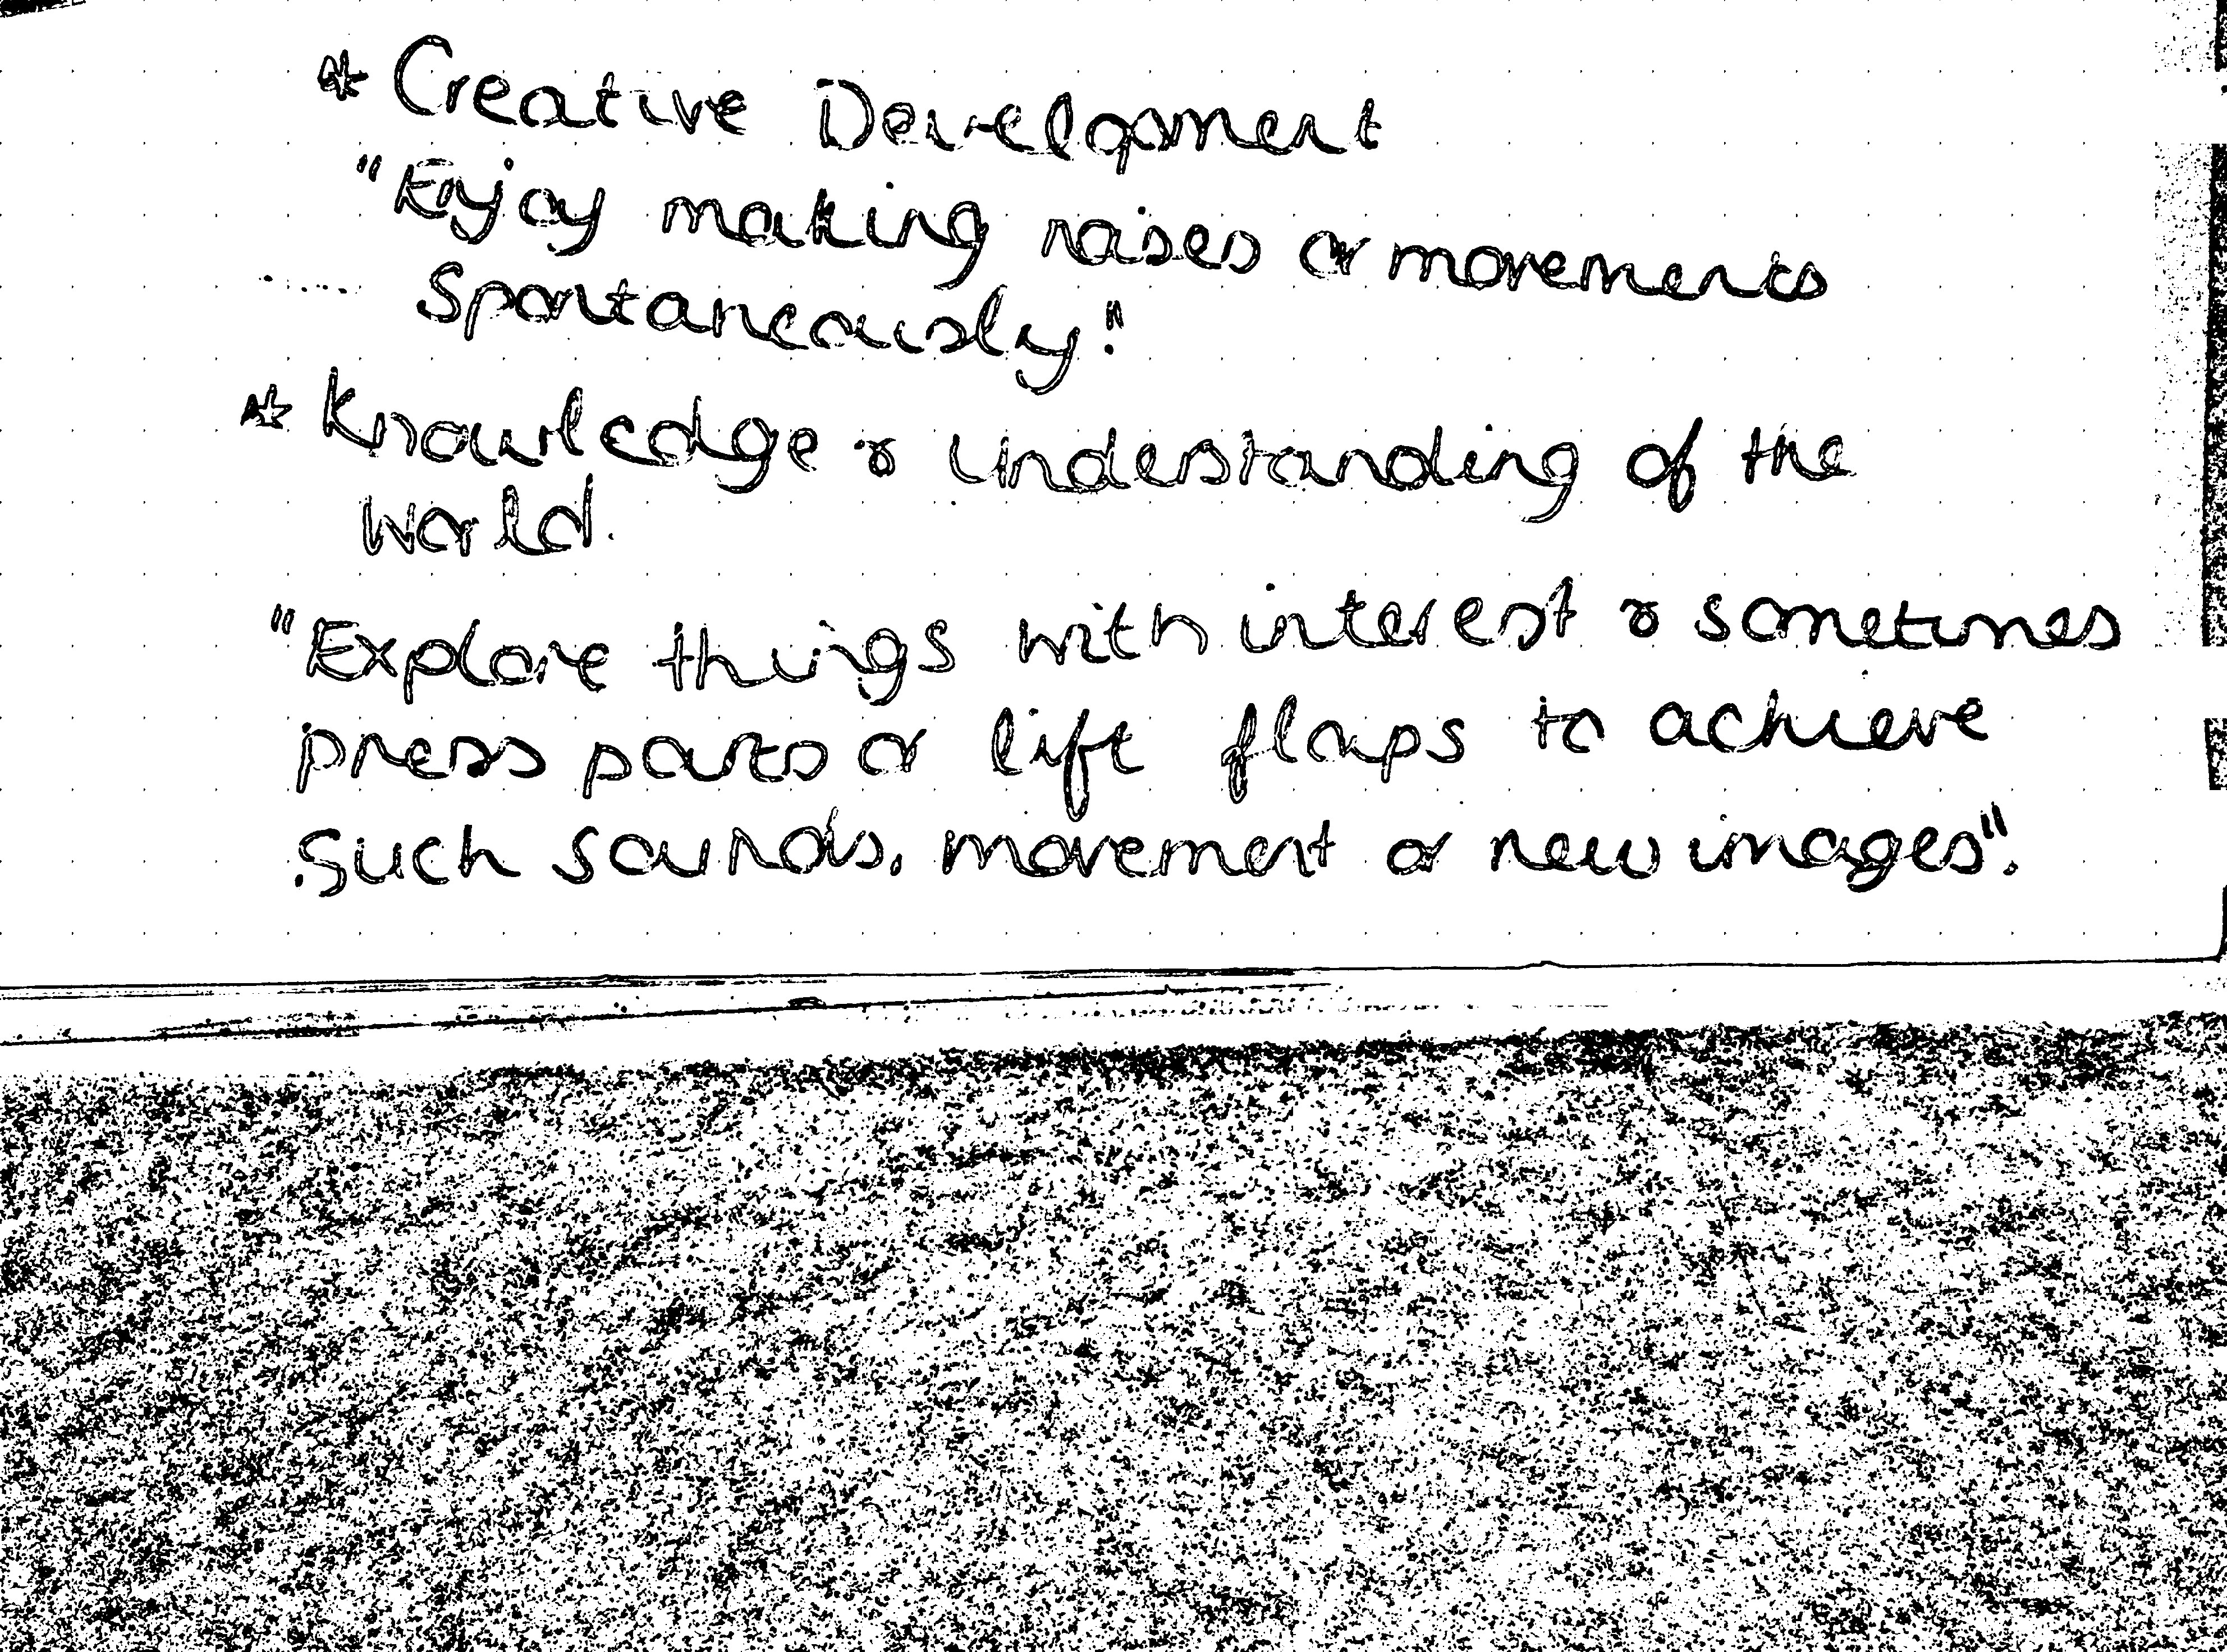 * Creative Development
"Enjoy making noises or movements
spontaneously."
* Knowledge & Understanding of the
World.
"Explore things with interest & sometimes
press parts or lift flaps to achieve
such sounds, movement or new images".